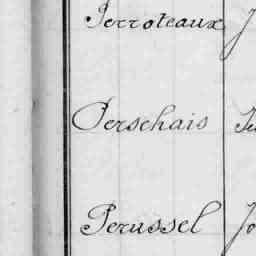 Perroteaux J
Perschais
Perussel Jo